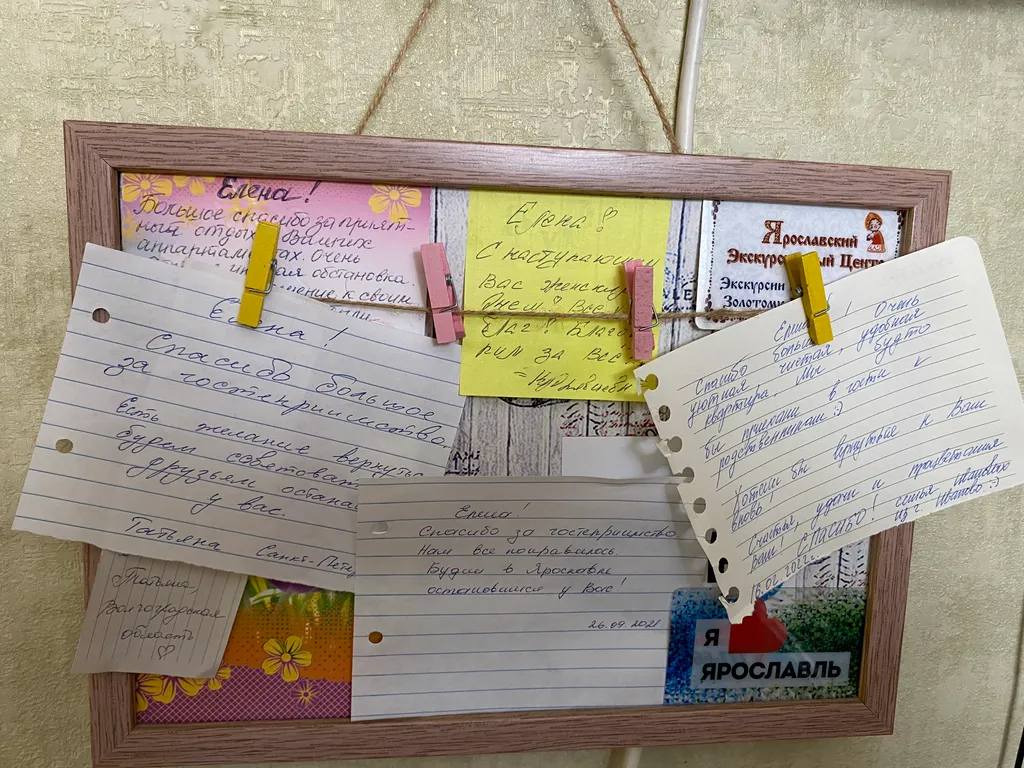 Елена!
Большое спасибо за прият-
ный отдых в Ваших
аппартаментах. Очень
обстановка.
к своим
Елена!
С наступающим
Вас женским
Днём! Все
благ! Благо
рим за Все
Ярославский
Экскурсионный Центр
Экскурсии
Золотому
Елена!
Спасибо большое
за гостеприимство.
Есть желание вернуться
будем советовать
друзьям остана
у вас.
Татьяна Санкт-Петер
Елена! Очень
Спасибо большое!
уютная, чистая, удобная
квартира. Мы будто
бы приехали в гости к
родственникам :)
Хотели бы вернуться к Вам
вновь!
Счастья, удачи и процветания
Вам! СПАСИБО! семья Ивановых
16.02.2022г. из г. Иваново :)
Елена!
Спасибо за гостеприимство.
Нам все понравилось.
Будем в Ярославле
остановимся у Вас!
26.09.2021
Татьяна,
Волгоградская
область
Я
ЯРОСЛАВЛЬ